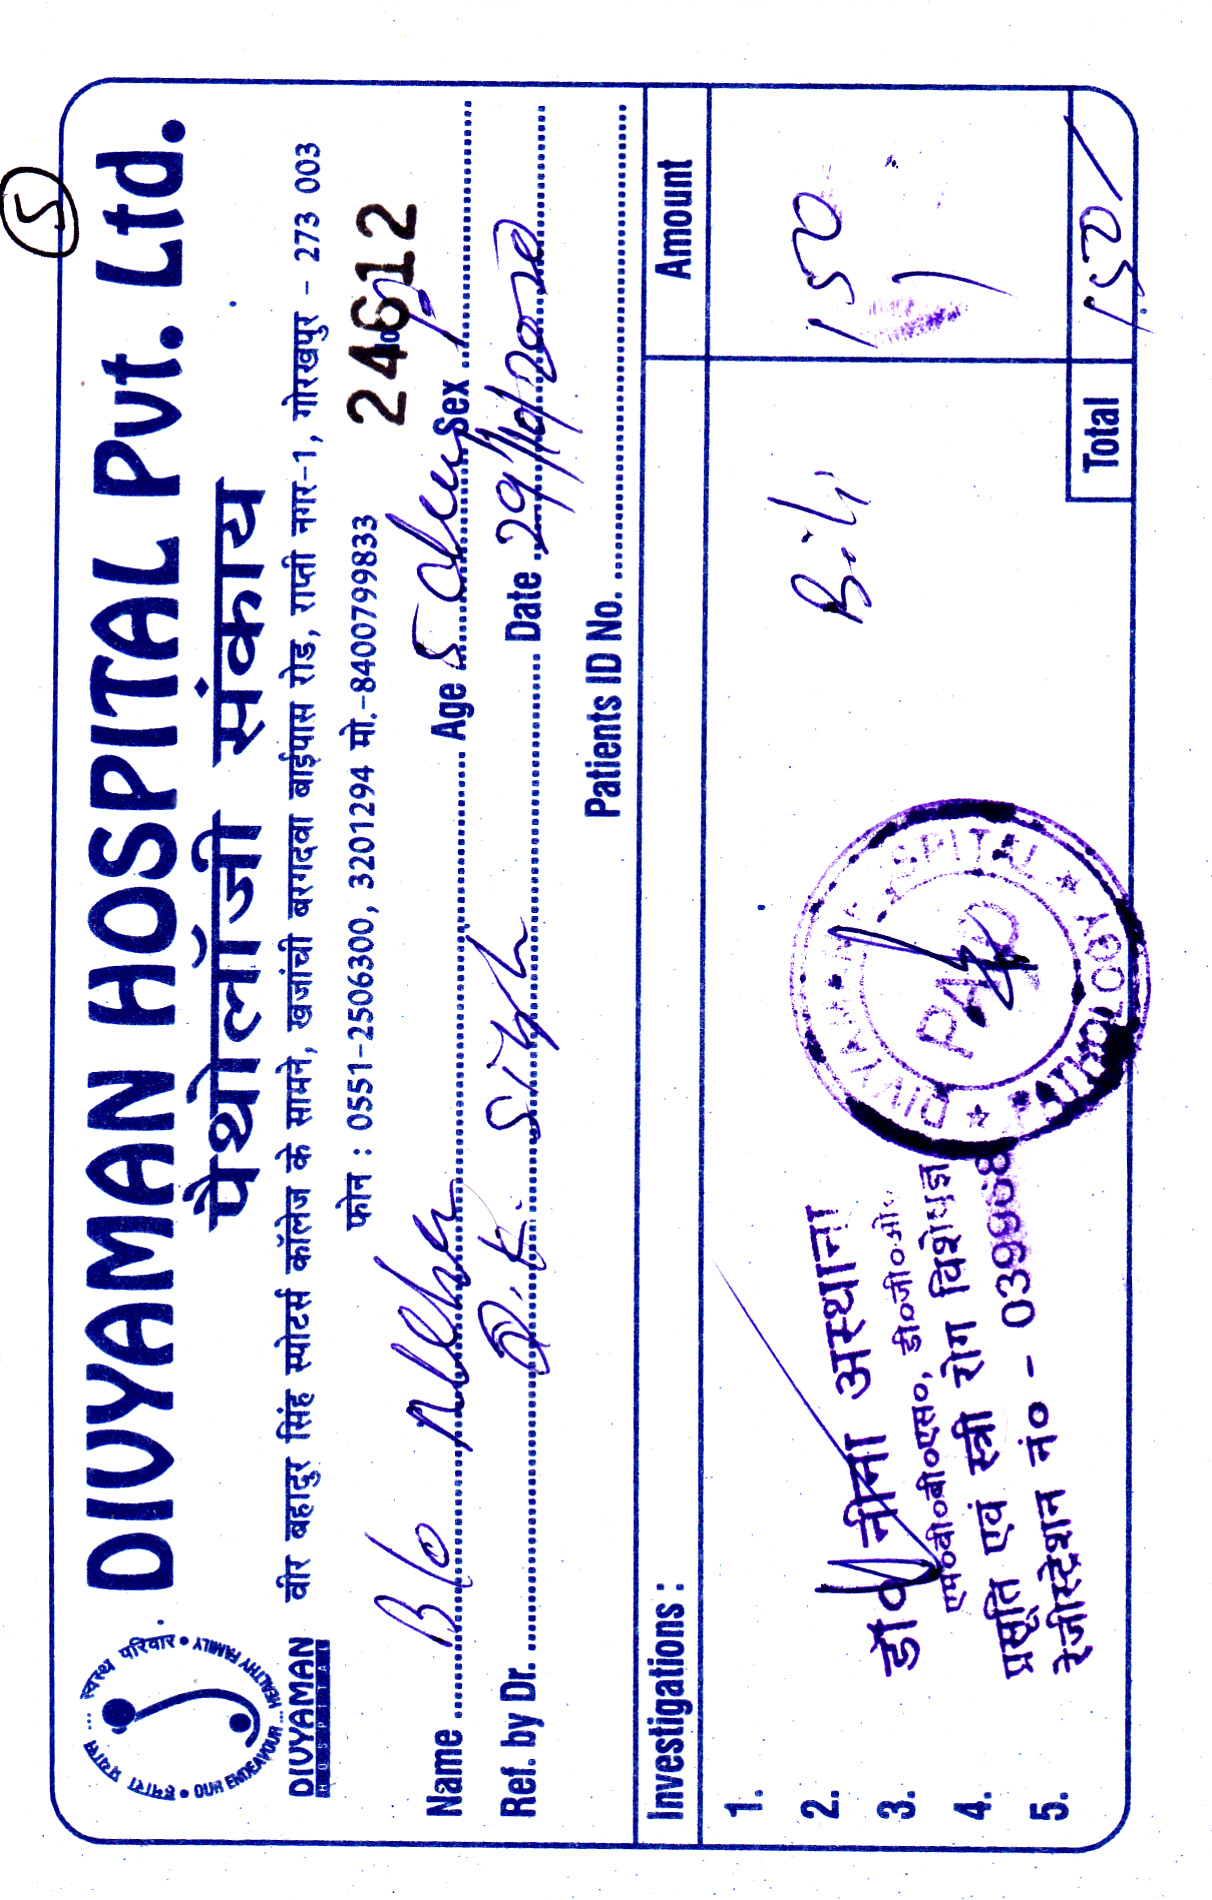 5
DIVYAMAN HOSPITAL Pvt. Ltd.
पैथोलॉजी संकाय
हमारा प्रयास ... स्वस्थ परिवार • OUR ENDEAVOUR ... HEALTHY FAMILY
DIVYAMAN
HOSPITAL
वीर बहादुर सिंह स्पोटर्स कॉलेज के सामने, खजांची बरगदवा बाईपास रोड, राप्ती नगर-1, गोरखपुर - 273 003
फोन : 0551-2506300, 3201294 मो.-8400799833
24612
Name B/o Neha Age 5 days Sex
Ref. by Dr. D.K. Singh Date 29/10/2020
Patients ID No.
Investigations : Amount
1.
2. Bili 150
3.
4.
5.
Total 150/
डॉ० नीना अस्थाना
एम०बी०बी०एस०, डी०जी०ओ०
प्रसूति एवं स्त्री रोग विशेषज्ञ
रजीस्ट्रेशन नं० - 039908
DIVYAMAN HOSPITAL
PATHOLOGY
PAID